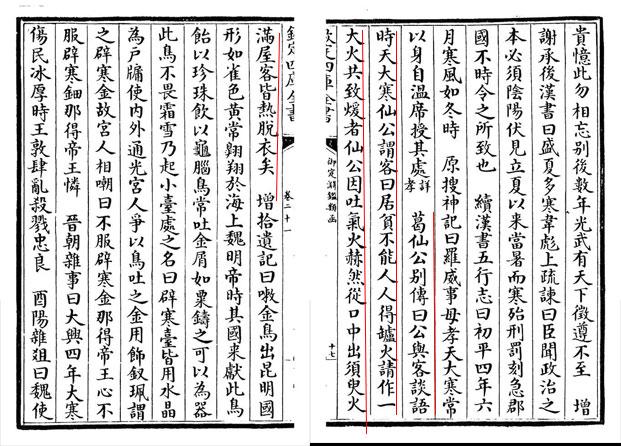 貴憶此勿相忘別後數年光武有天下徵遵不至　增
謝承後漢書曰盛夏多寒韋彪上疏諫曰臣聞政治之
本必須陰陽伏見立夏以來當暑而寒殆刑罰刻急郡
國不時令之所致也　續漢書五行志曰初平四年六
月寒風如冬時　原搜神記曰羅威事母孝天大寒常
以身自温席授其處詳孝　葛仙公別傳曰公與客談語
時天大寒仙公謂客曰居貧不能人人得罏火請作一
大火共致煖者仙公因吐氣火赫然從口中出須臾火
欽定四庫全書
御定淵鑑類函
卷二十一
十七
滿屋客皆熱脫衣矣　增拾遺記曰嗽金鳥出昆明國
形如雀色黃常翱翔於海上魏明帝時其國来獻此鳥
飴以珍珠飲以龜腦鳥常吐金屑如粟鑄之可以為器
此鳥不畏霜雪乃起小臺處之名曰辟寒臺皆用水晶
為戶牖使内外通光宮人爭以鳥吐之金用飾釵珮謂
之辟寒金故宮人相嘲曰不服辟寒金那得帝王心不
服辟寒鈿那得帝王憐　晉朝雜事曰大興四年大寒
傷民冰厚時王敦肆亂殺戮忠良　酉陽雜俎曰魏使